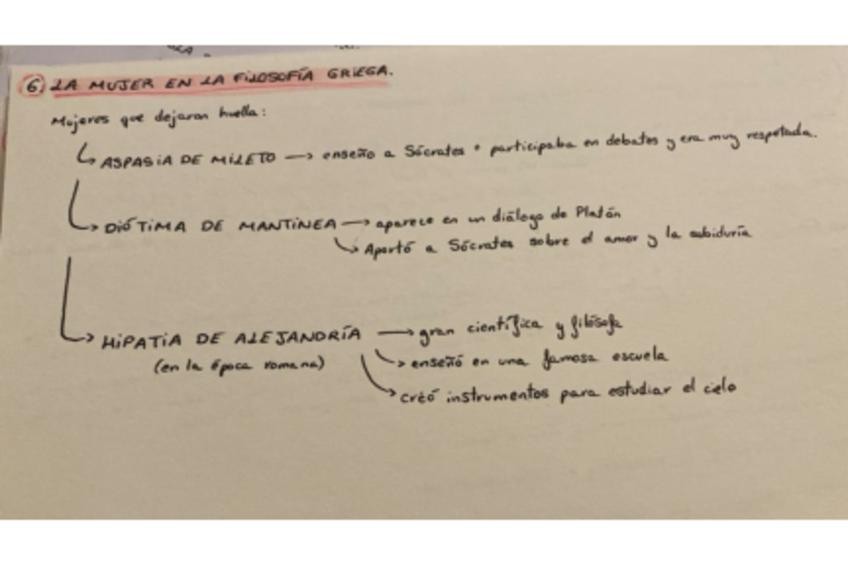 6. LA MUJER EN LA FILOSOFÍA GRIEGA.
Mujeres que dejaron huella:
↳ ASPASIA DE MILETO → enseño a Sócrates • participaba en debates y era muy respetada.
↳ DIÓTIMA DE MANTINEA → aparece en un diálogo de Platón
↳ Aportó a Sócrates sobre el amor y la sabiduría
↳ HIPATIA DE ALEJANDRÍA → gran científica y filósofa
(en la época romana) ↳ enseñó en una famosa escuela
↳ creó instrumentos para estudiar el cielo